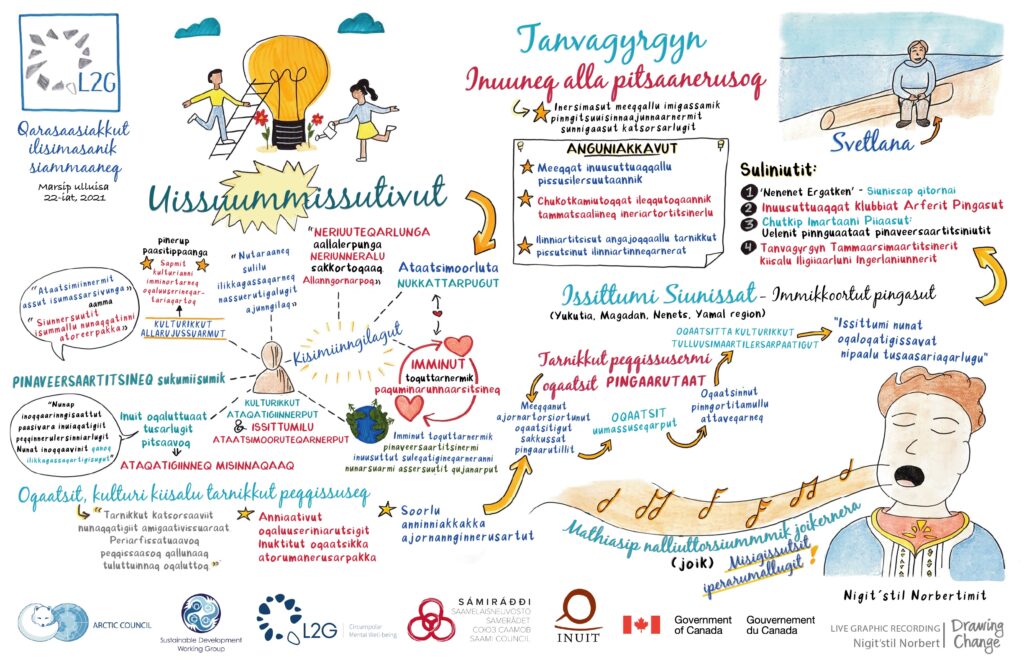 L2G
Qarasaasiakkut
ilisimasanik
siammaaneq
Marsip ulluisa
22-iat, 2021
Uissuummissutivut
pinerup
paasitippaanga
Sapmit
kulturianni
imminortarneq
oqaluuserineqar-
tariaqartoq
KULTURIKKUT
ALLARUJUSSUARMUT
"Ataatsimiinnermit
assut isumassarsivunga"
aamma
"Siunnersuutit
isummallu nunaqqatinni
atoreerpakka"
"Nutaraaneq
sulilu
ilikkagassaqarneq
nassuerutigalugit
ajunngilaq"
"NERIUUTEQARLUNGA
aallalerpunga
NERIUNNERALU
sakkortoqaaq
Allanngornarpoq"
Ataatsimoorluta
NUKKATTARPUGUT
Kisimiinngilagut
IMMINUT
toquttarnermik
paquminarunnaarsitsineq
PINAVEERSAARTITSINEQ sukumiisumik
"Nunap
inoqqaarinngisaattut
paasivara inuiaqatigiit
peqqinnerulersinniarlugit
Nunat inoqqaavinit qanoq
ilikkagassaqartigisugut"
Inuit oqaluttuaat
tusarlugit
pitsaavoq
ATAQATIGIINNEQ MISINNAQAAQ
KULTURIKKUT
ATAQATIGIINNERPUT
& ISSITTUMILU
ATAATSIMOORUTEQARNERPUT
Imminut toquttarnermik
pinaveersaartitsinermi
inuusuttut suleqatigineqarneranni
nunarsuarmi assersuutit qujanarput
Oqaatsit, kulturi kiisalu tarnikkut peqqissuseq
"Tarnikkut katsorsaaviit
nunaqqatigiit amigaativissuaraat
Periarfissatuaavoq
peqqissaasoq qallunaaq
tuluttuinnaq oqaluttoq"
Anniaativut
oqaluuseriniarutsigit
Inuktitut oqaatsikka
atorumanerusarpakka
Soorlu
anninniakkakka
ajornannginnerusartut
Tanvagyrgyn
Inuuneq alla pitsaanerusoq
Inersimasut meeqqallu imigassamik
pinngitsuuisinnaajunnaarnermit
sunnigaasut katsorsarlugit
ANGUNIAKKAVUT
Meeqqat inuusuttuaqqallu
pissusilersuutaannik
Chukotkamiutoqqat ileqqutoqaannik
tammatsaaliineq ineriartortitsinerlu
Ilinniartitsisut angajoqqaallu tarnikkut
pissutsinut ilinniartinneqarnerat
Svetlana
Suliniutit:
1 'Nenenet Ergatken' - Siunissap qitornai
2 Inuusuttuaqqat klubbiat Arferit Pingasut
3 Chutkip Imartaani Piiaasut:
Uelenit pinnguaataat pinaveersaartitsiniutit
4 Tanvagyrgyn Tammaarsimaartitsinerit
kiisalu Iligiiaarluni Ingerlaniunnerit
Issittumi Siunissat - Immikkoortut pingasut
(Yukutia, Magadan, Nenets, Yamal region)
Tarnikkut peqqissusermi
oqaatsit PINGAARUTAAT
Meeqqanut
ajornartorsiortunut
oqaatsitigut
sakkussat
pingaarutillit
OQAATSIT
uumassuseqarput
Oqaatsinut
pinngortitamullu
attaveqarneq
OQAATSITTA KULTURIKKUT
TULLUUSIMAARTILERSARPAATIGUT
"Issittumi nunat
oqaloqatigiissavat
nipaalu tusaasariaqarlugu"
Mathiasip nalliuttorsiummmik joikernera
(joik)
Misigissutsit
iperarumallugit!
Nigit'stil Norbertimit
ARCTIC COUNCIL
Sustainable Development
Working Group
L2G
Circumpolar
Mental Well-being
SÁMIRÁĐĐI
SAAMELAISNEUVOSTO
SAMERÅDET
СОЮЗ СААМОВ
SAAMI COUNCIL
INUIT
Government
of Canada
Gouvernement
du Canada
LIVE GRAPHIC RECORDING
Nigit'stil Norbert
Drawing
Change